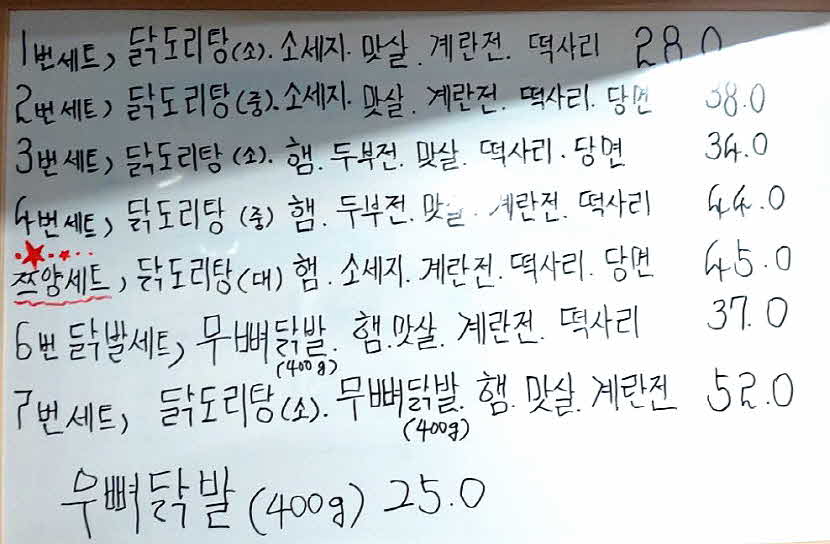 1번세트, 닭도리탕(소). 소세지. 맛살. 계란전. 떡사리 28.0
2번세트, 닭도리탕(중). 소세지. 맛살. 계란전. 떡사리. 당면 38.0
3번세트, 닭도리탕(소). 햄. 두부전. 맛살. 떡사리. 당면 34.0
4번세트, 닭도리탕(중) 햄. 두부전. 맛살. 계란전. 떡사리 44.0
쯔양세트, 닭도리탕(대) 햄. 소세지. 계란전. 떡사리. 당면 45.0
6번 닭발세트, 무뼈닭발. 햄.맛살. 계란전. 떡사리 37.0
(400g)
7번세트, 닭도리탕(소). 무뼈닭발. 햄. 맛살. 계란전 52.0
(400g)
무뼈닭발 (400g) 25.0